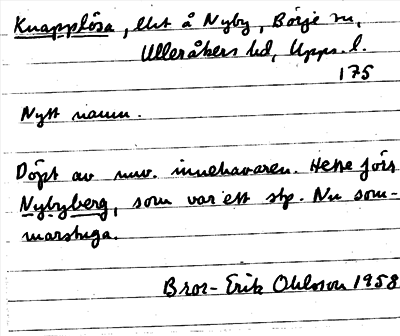 Knapplösa, lht å Nyby, Börje sn,
Ulleråkers hd, Upps. l.
175
Nytt namn.
Döpt av nuv. innehavaren. Hette förs
Nybyberg, som var ett stp. Nu som-
marstuga.
Bror-Erik Ohlsson 1958